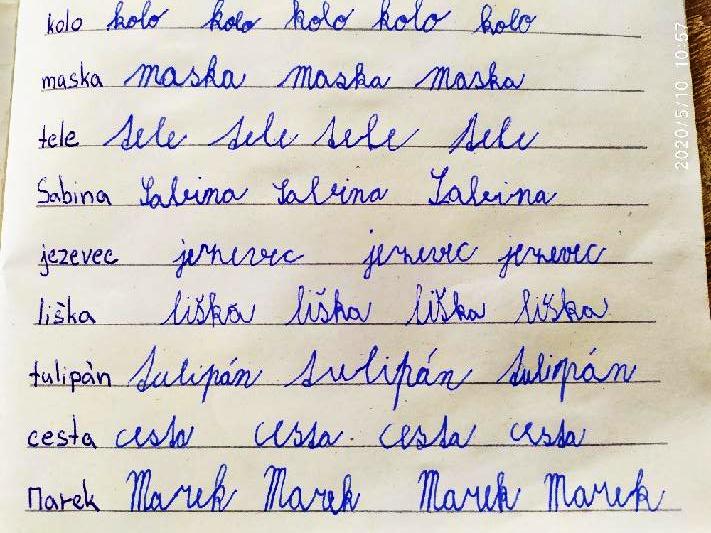 kolo kolo kolo kolo kolo kolo
maska maska maska maska
tele tele tele tele tele
Sabina Sabina Sabina Sabina
jezevec jezevec jezevec jezevec
liška liška liška liška liška
tulipán tulipán tulipán tulipán
cesta cesta cesta cesta cesta
Marek Marek Marek Marek Marek
2020/5/10 10:57